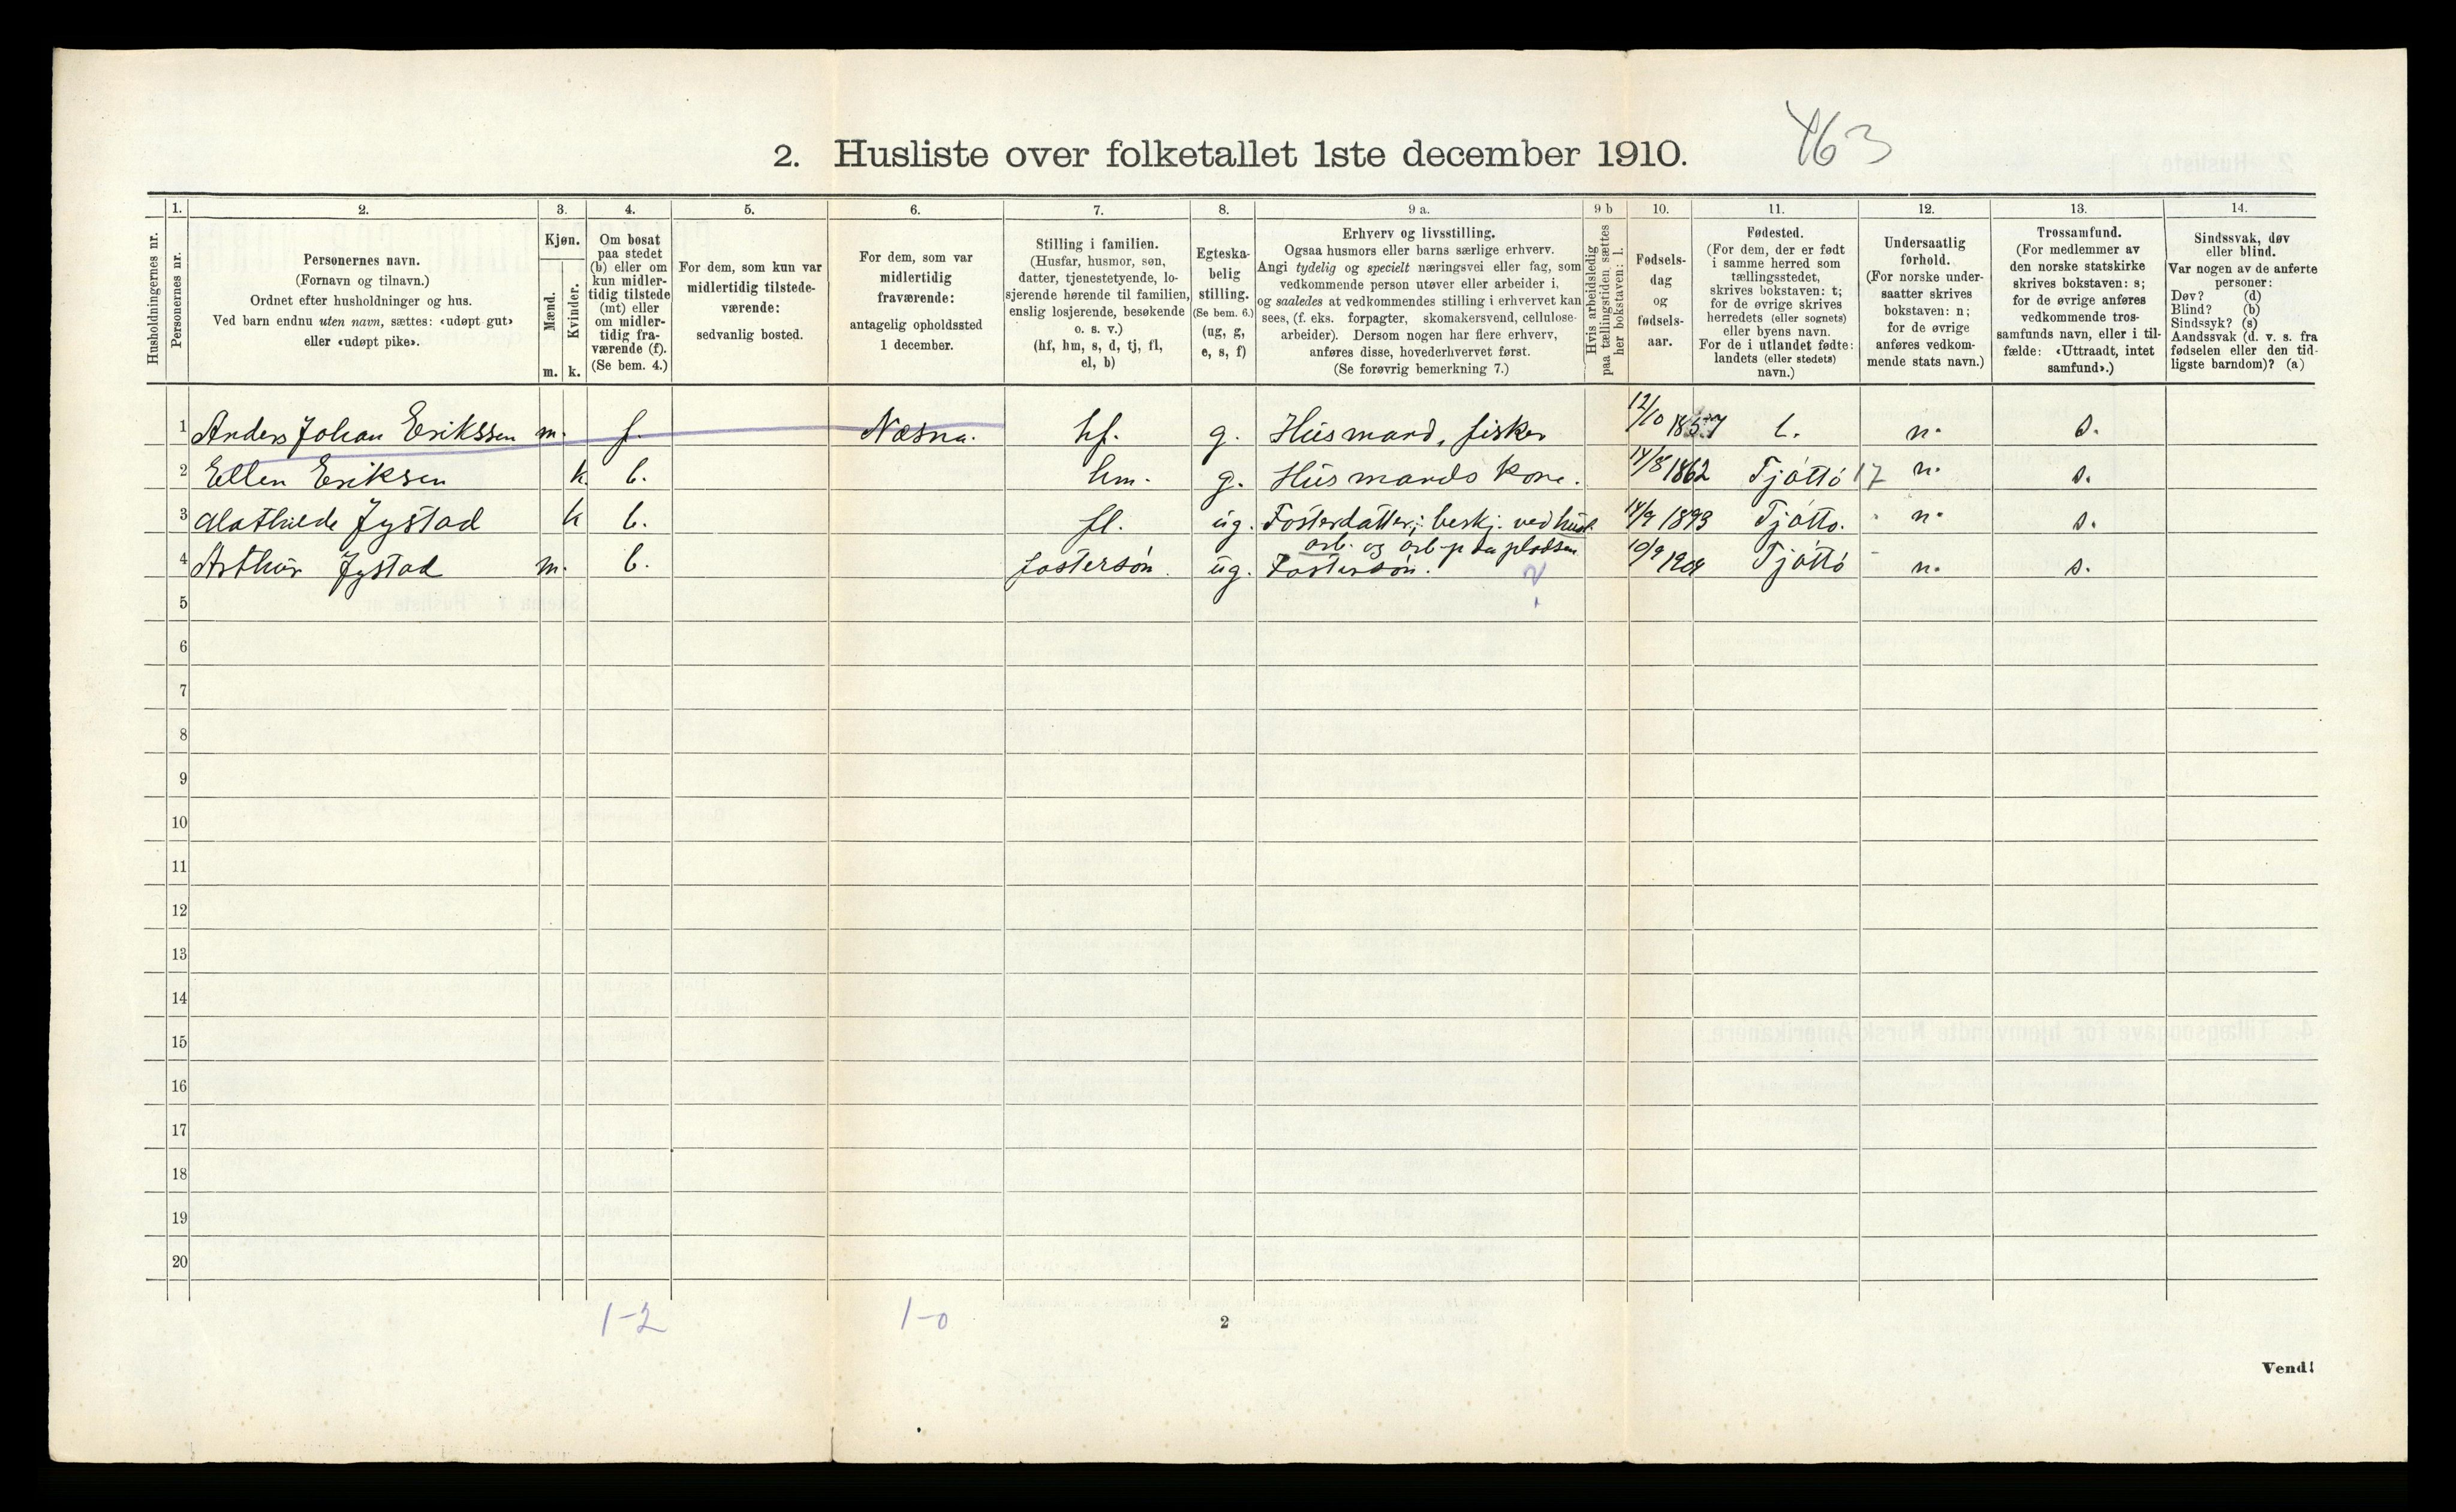 2. Husliste over folketallet 1ste december 1910.
463
Husholdningernes nr.
1.
Personernes nr.
2.
Personernes navn.
(Fornavn og tilnavn.)
Ordnet efter husholdninger og hus.
Ved barn endnu uten navn, sættes: «udøpt gut»
eller «udøpt pike».
3.
Kjøn.
Mænd.
Kvinder.
m. k.
4.
Om bosat
paa stedet
(b) eller om
kun midler-
tidig tilstede
(mt) eller
om midler-
tidig fra-
værende (f).
(Se bem. 4.)
5.
For dem, som kun var
midlertidig tilstede-
værende:
sedvanlig bosted.
6.
For dem, som var
midlertidig
fraværende:
antagelig opholdssted
1 december.
7.
Stilling i familien.
(Husfar, husmor, søn,
datter, tjenestetyende, lo-
sjerende hørende til familien,
enslig losjerende, besøkende
o. s. v.)
(hf, hm, s, d, tj, fl,
el, b)
8.
Egteska-
belig
stilling.
(Se bem. 6.)
(ug, g,
e, s, f)
9 a.
Erhverv og livsstilling.
Ogsaa husmors eller barns særlige erhverv.
Angi tydelig og specielt næringsvei eller fag, som
vedkommende person utøver eller arbeider i,
og saaledes at vedkommendes stilling i erhvervet kan
sees, (f. eks. forpagter, skomakersvend, cellulose-
arbeider). Dersom nogen har flere erhverv,
anføres disse, hovederhvervet først.
(Se forøvrig bemerkning 7.)
9 b
Hvis arbeidsledig
paa tællingstiden sættes
her bokstaven: l.
10.
Fødsels-
dag
og
fødsels-
aar.
11.
Fødested.
(For dem, der er født
i samme herred som
tællingsstedet,
skrives bokstaven: t;
for de øvrige skrives
herredets (eller sognets)
eller byens navn.
For de i utlandet fødte:
landets (eller stedets)
navn.)
12.
Undersaatlig
forhold.
(For norske under-
saatter skrives
bokstaven: n;
for de øvrige
anføres vedkom-
mende stats navn.)
13.
Trossamfund.
(For medlemmer av
den norske statskirke
skrives bokstaven: s;
for de øvrige anføres
vedkommende tros-
samfunds navn, eller i til-
fælde: «Uttraadt, intet
samfund».)
14.
Sindssvak, døv
eller blind.
Var nogen av de anførte
personer:
Døv? (d)
Blind? (b)
Sindssyk? (s)
Aandssvak (d. v. s. fra
fødselen eller den tid-
ligste barndom)? (a)
1 Anders Johan Erikssen m. f. Næsna. hf. g. Husmand, fisker 12/10 1857 t. n. s.
2 Ellen Eriksen k. b. hm. g. Husmands kone. 14/8 1862 Tjøttø 17 n. s.
3 Mathilde Jystad k b. fl. ug. Fosterdatter; beskj. ved hus
arb. og arb. paa pladsen 14/9 1893 Tjøttø. n. s.
4 Arthur Jystad m. b. fostersøn. ug. Fostersøn. ? 10/9 1904 Tjøttø n. s.
5
6
7
8
9
10
11
12
13
14
15
16
17
18
19
20
1-2 1-0
2
Vend!